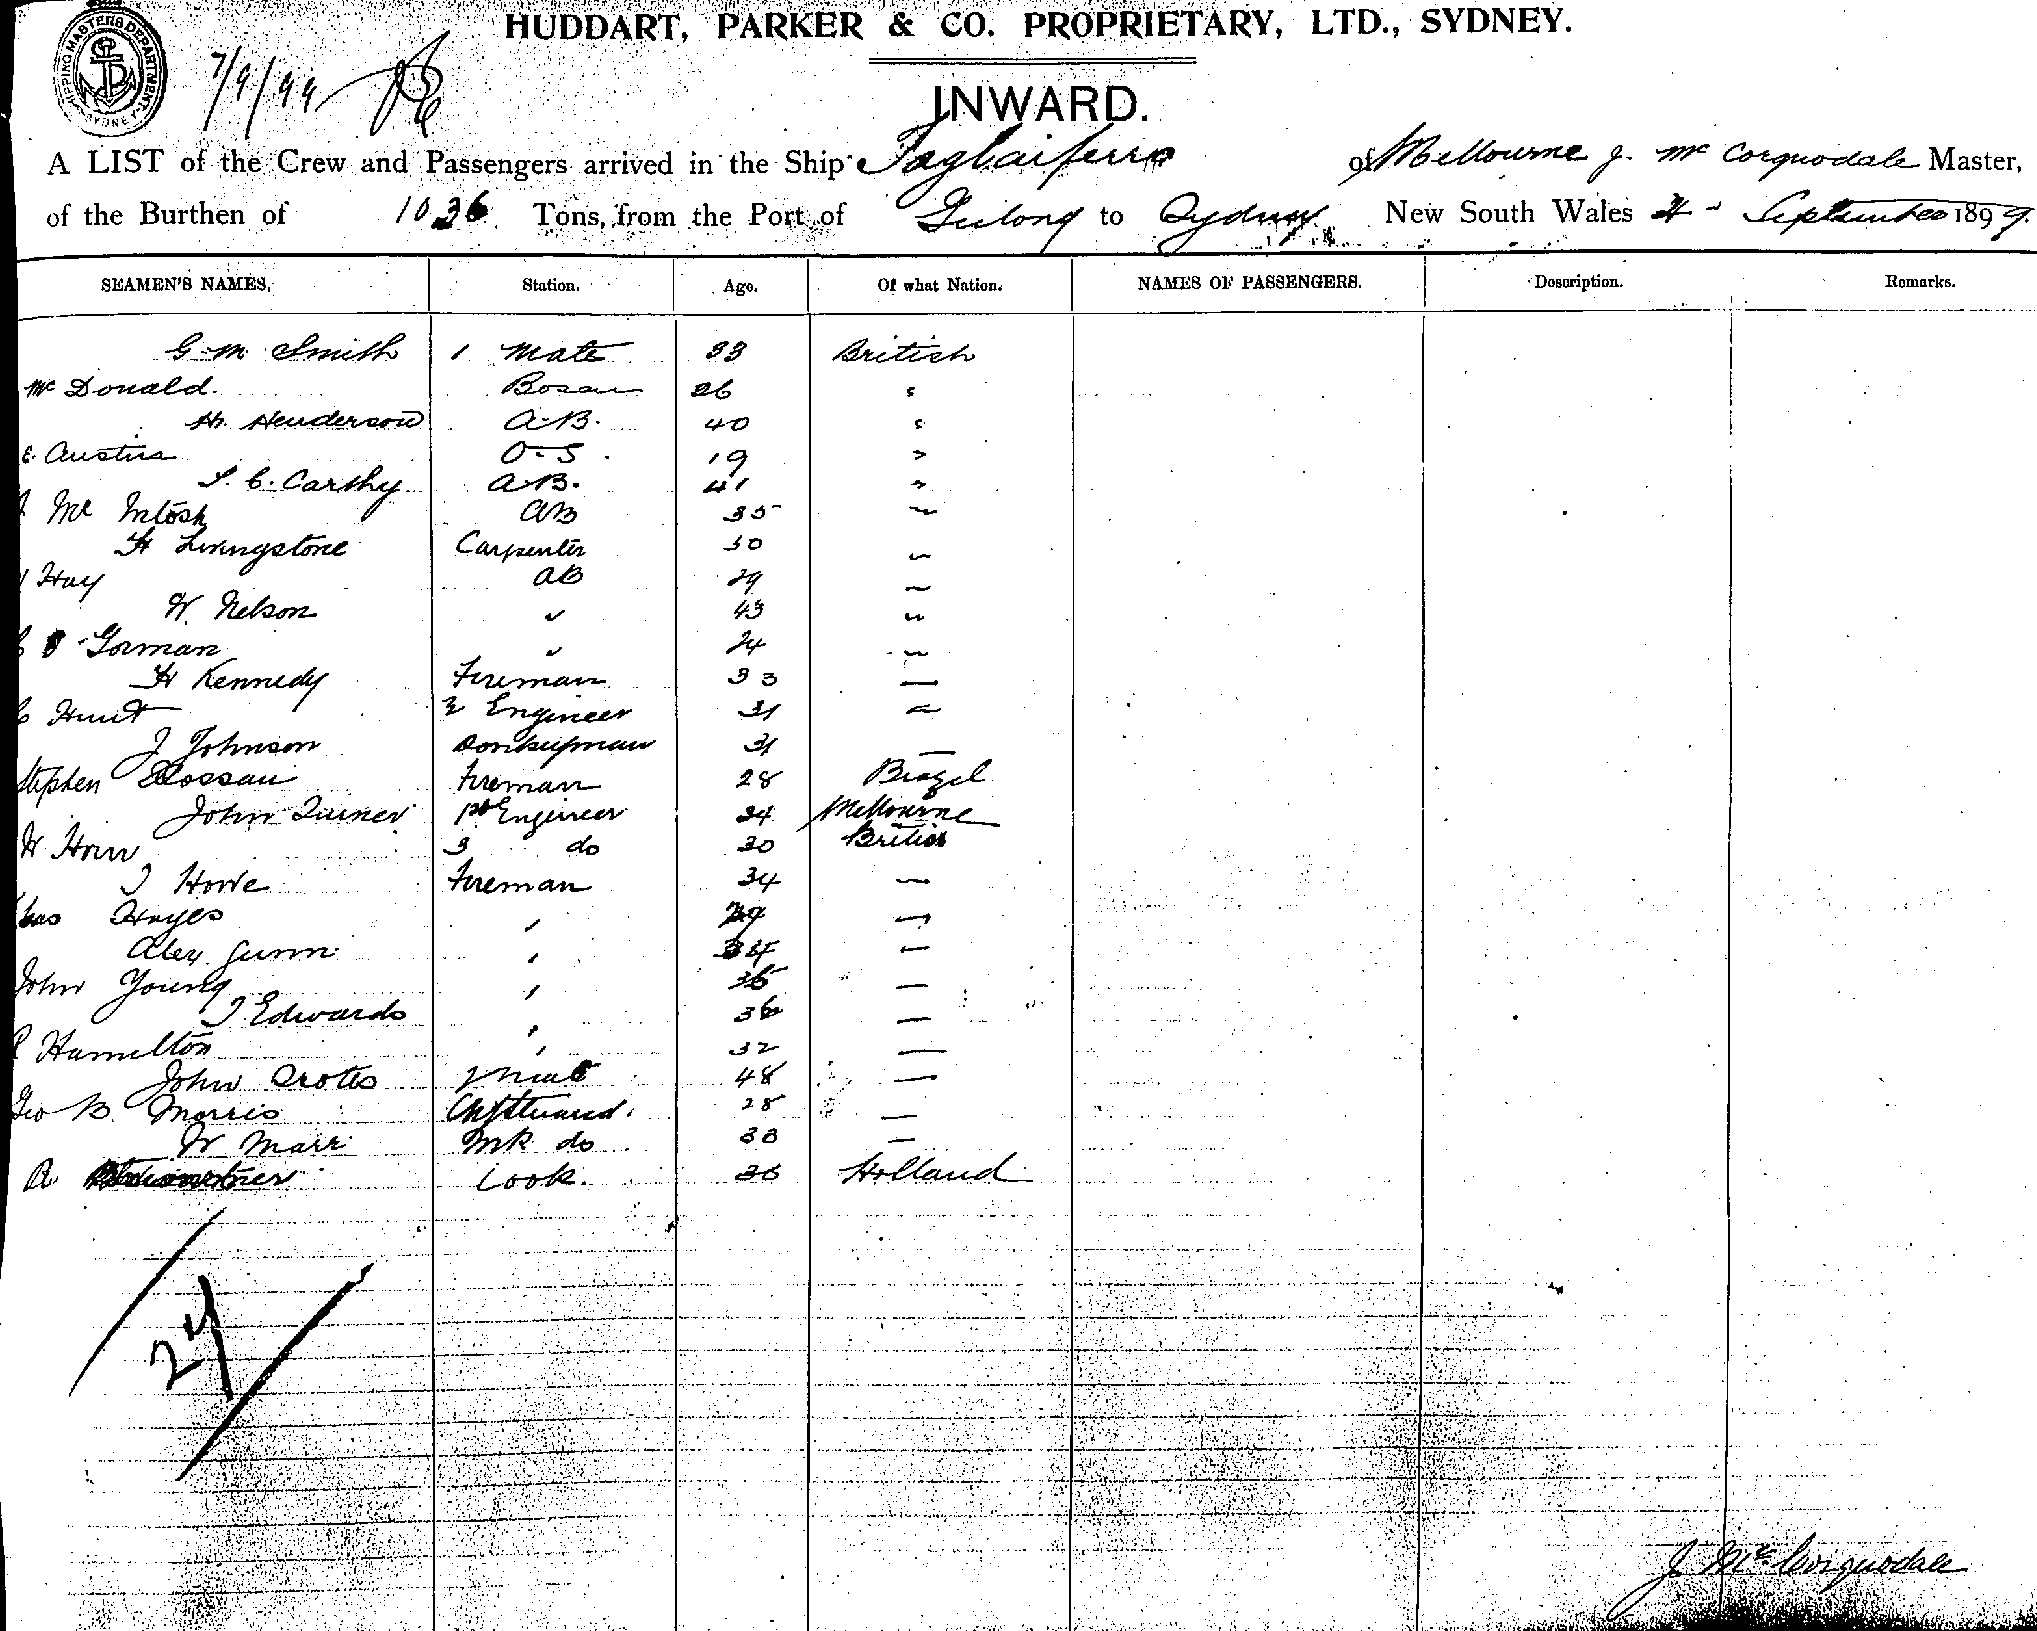 SHIPPING MASTERS DEPARTMENT SYDNEY
HUDDART, PARKER & CO. PROPRIETARY, LTD., SYDNEY.
7/9/99
INWARD.
A LIST of the Crew and Passengers arrived in the Ship Tagliaferro of Melbourne J. Mc Corquodale Master,
of the Burthen of 1036 Tons, from the Port of Geelong to Sydney New South Wales 4 September 1899.
SEAMEN'S NAMES. Station. Age. Of what Nation. NAMES OF PASSENGERS. Description. Remarks.
G. M. Smith 1 Mate 33 British
Mc Donald Bosan 26 "
H. Henderson A.B. 40 "
E. Austin O.S. 19 "
S. C. Carthy A.B. 41 "
Mc Intosh AB 35 "
H Livingstone Carpenter 30 "
Hay AB 29 "
W. Nelson " 43 "
Gorman " 24 "
H Kennedy Fireman 33 —
C Hunt 2 Engineer 31 "
J Johnson Donkeyman 31 —
Stephen Fireman 28 Brazil
John Turner 1st Engineer 34 Melbourne
W 3 do 30 British
J Howe Fireman 34 —
Chas Hayes " 29 —
Alex Gunn " 34 —
John Young " 36 —
J Edwards " 36 —
Hamilton " 32 —
John 2 Mate 48 —
Geo B. Morris Ch Steward 28 —
W Marr 2nd do 33 —
R Cook. 36 Holland
24
J. McCorquodale